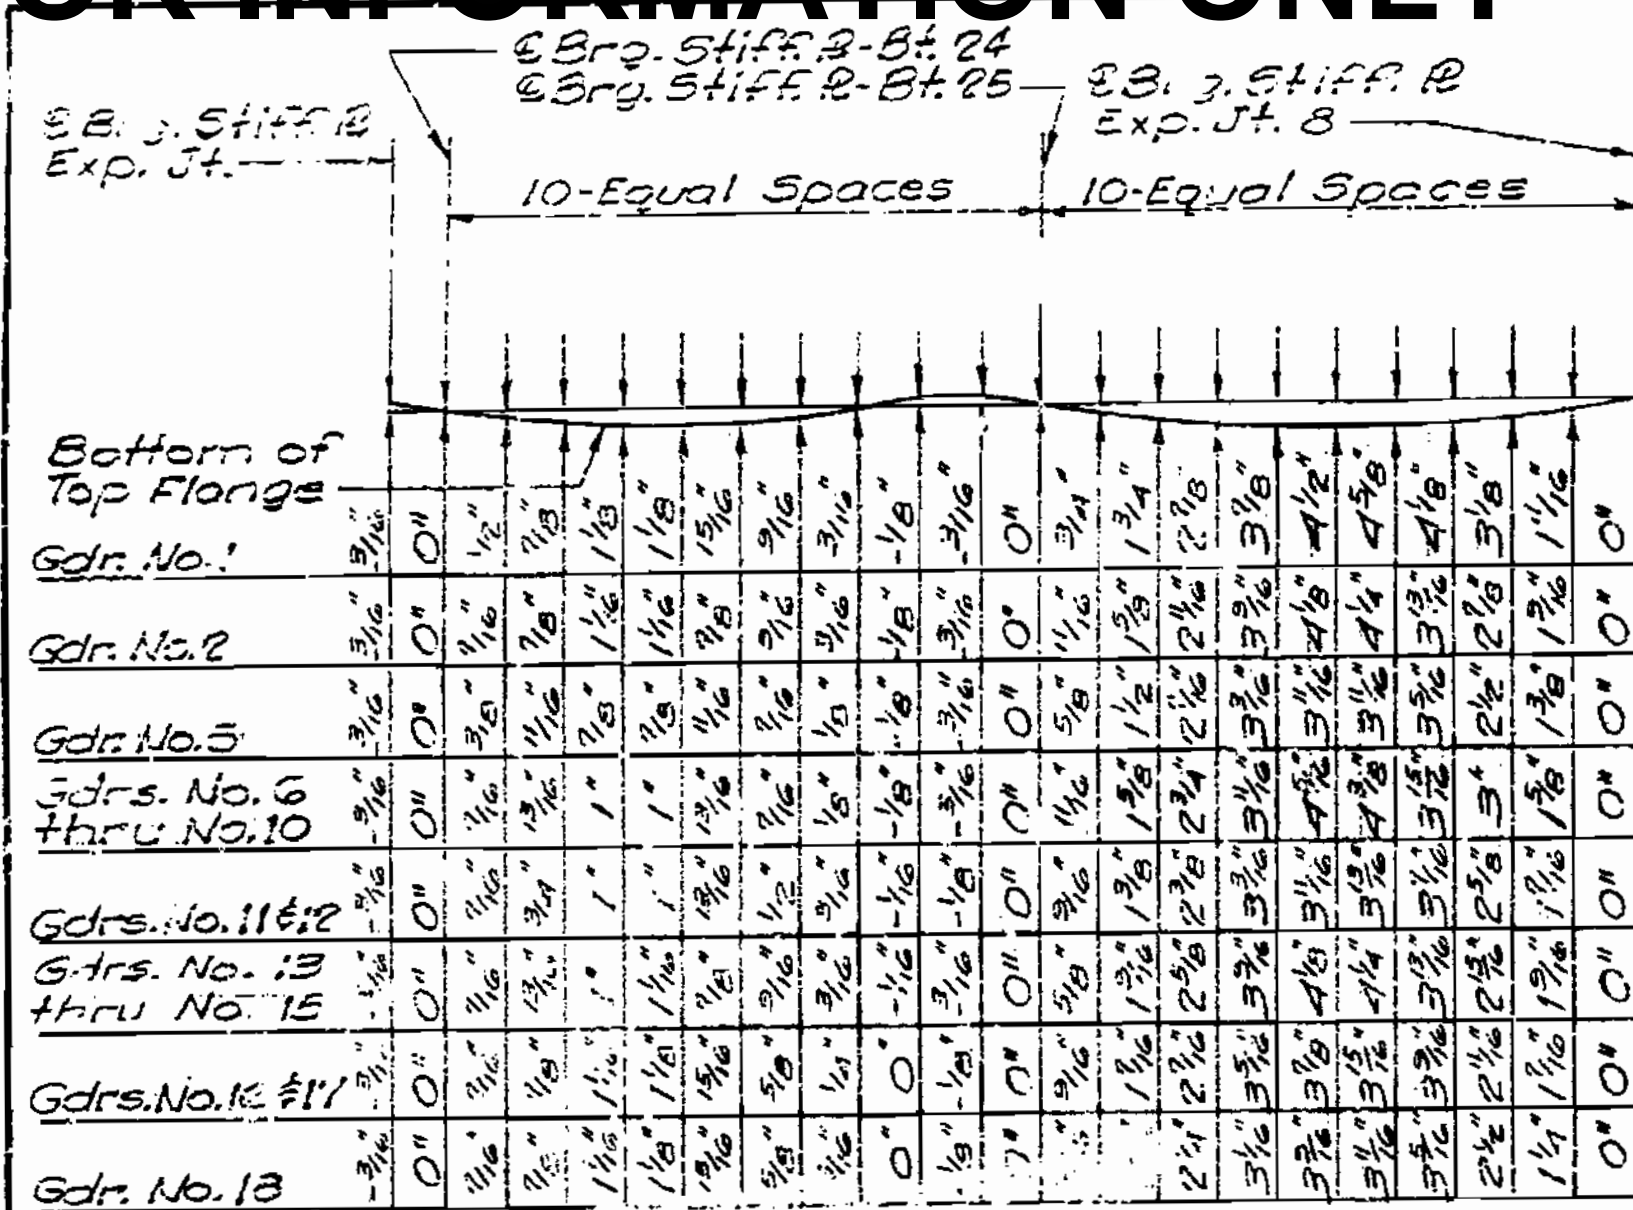 OR INFORMATION ONLY
℄ Brg. Stiff. ℞-Bt. 24
℄ Brg. Stiff. ℞-Bt. 25
℄ Brg. Stiff. ℞
Exp. Jt. 8
℄ Brg. Stiff. ℞
Exp. Jt.
10-Equal Spaces 10-Equal Spaces
Bottom of
Top Flange
Gdr. No. 1 -3/16" 0" 1/2" 7/8" 1 1/8" 1 1/8" 15/16" 9/16" 3/16" -1/8" -3/16" 0" 3/4" 1 3/4" 2 7/8" 3 7/8" 4 1/2" 4 5/8" 4 1/8" 3 1/8" 1 11/16" 0"
Gdr. No. 2 -3/16" 0" 7/16" 7/8" 1 1/16" 1 1/16" 7/8" 9/16" 3/16" -1/8" -3/16" 0" 11/16" 1 5/8" 2 11/16" 3 9/16" 4 1/8" 4 1/4" 3 13/16" 2 7/8" 1 9/16" 0"
Gdr. No. 5 -3/16" 0" 3/8" 11/16" 7/8" 7/8" 11/16" 7/16" 1/8" -1/8" -3/16" 0" 5/8" 1 1/2" 3 3/16" 3 11/16" 3 11/16" 3 5/16" 2 1/2" 1 3/8" 0"
Gdrs. No. 6
thru No. 10 -3/16" 0" 7/16" 13/16" 1" 1" 13/16" 7/16" 1/8" -1/8" -3/16" 0" 11/16" 1 5/8" 2 3/4" 3 11/16" 4 5/16" 4 3/8" 3 15/16" 3" 1 5/8" 0"
Gdrs. No. 11 & 12 0" 7/16" 3/4" 1" 1" 13/16" 1/2" 3/16" -1/16" -1/8" 0" 9/16" 1 3/8" 2 3/8" 3 3/16" 3 11/16" 3 13/16" 3 1/16" 2 5/8" 1 7/16" 0"
Gdrs. No. 13
thru No. 15 0" 7/16" 13/16" 1" 1 1/16" 7/8" 9/16" 3/16" -1/16" -3/16" 0" 5/8" 1 9/16" 2 5/8" 3 9/16" 4 1/8" 4 1/4" 3 13/16" 2 15/16" 1 9/16" 0"
Gdrs. No. 16 & 17 0" 7/16" 7/8" 1 1/16" 1 1/8" 15/16" 5/8" 1/4" 0" -1/8" 0" 9/16" 1 7/16" 2 7/16" 3 5/16" 3 7/8" 3 15/16" 3 9/16" 2 11/16" 1 7/16" 0"
Gdr. No. 18 -3/16" 0" 7/16" 7/8" 1 1/16" 1 1/8" 15/16" 5/8" 0" 2 1/4" 3 1/16" 3 9/16" 3 11/16" 3 5/16" 2 1/2" 1 1/4" 0"